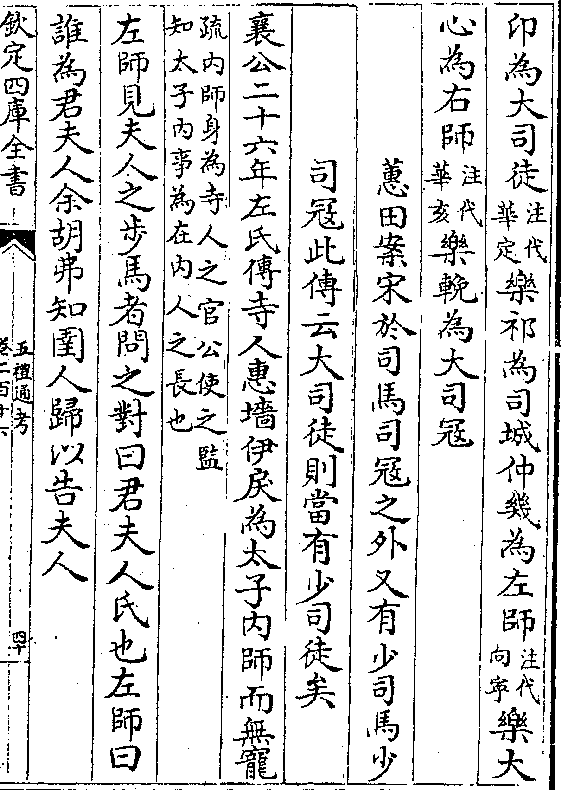 印為大司徒注代華定樂祁為司城仲幾為左師注代向寧樂大
心為右師注代華亥樂輓為大司冦
蕙田案宋於司馬司冦之外又有少司馬少
司冦此傳云大司徒則當有少司徒矣
襄公二十六年左氏傳寺人惠墻伊戾為太子内師而無寵
疏内師身為寺人之官公使之監
知太子内事為在内人之長也
左師見夫人之步馬者問之對曰君夫人氏也左師曰
誰為君夫人余胡弗知圉人歸以告夫人
欽定四庫全書
五禮通考
卷二百十六
四十